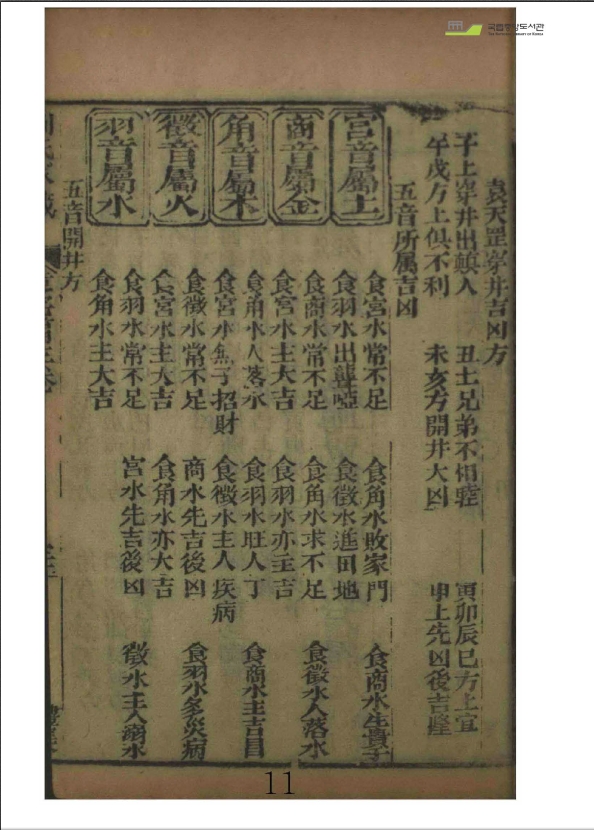 국립중앙도서관
THE NATIONAL LIBRARY OF KOREA
袁天罡穿井吉凶方
子上穿井出顛人 丑土兄弟不相睦 寅卯辰巳方上宜
午戌方上俱不利 未亥方開井大凶 申上先凶後吉隆
五音所属吉凶
宮音屬土
食宮水常不足 食角水敗家門 食商水生貴子
食羽水出聾啞 食徵水進田地
商音屬金
食商水常不足 食角水求不足 食徵水人落水
食宮水主大吉 食羽水亦主吉
角音屬木
食角水人落水 食羽水旺人丁 食商水主吉昌
食宮水無子招財 食徵水主人疾病
徵音屬火
食徵水常不足 商水先吉後凶 食羽水多災病
食宮水主大吉 食角水亦大吉
羽音屬水
食羽水常不足 宮水先吉後凶 徵水主人溺水
食角水主大吉
五音開井方
11